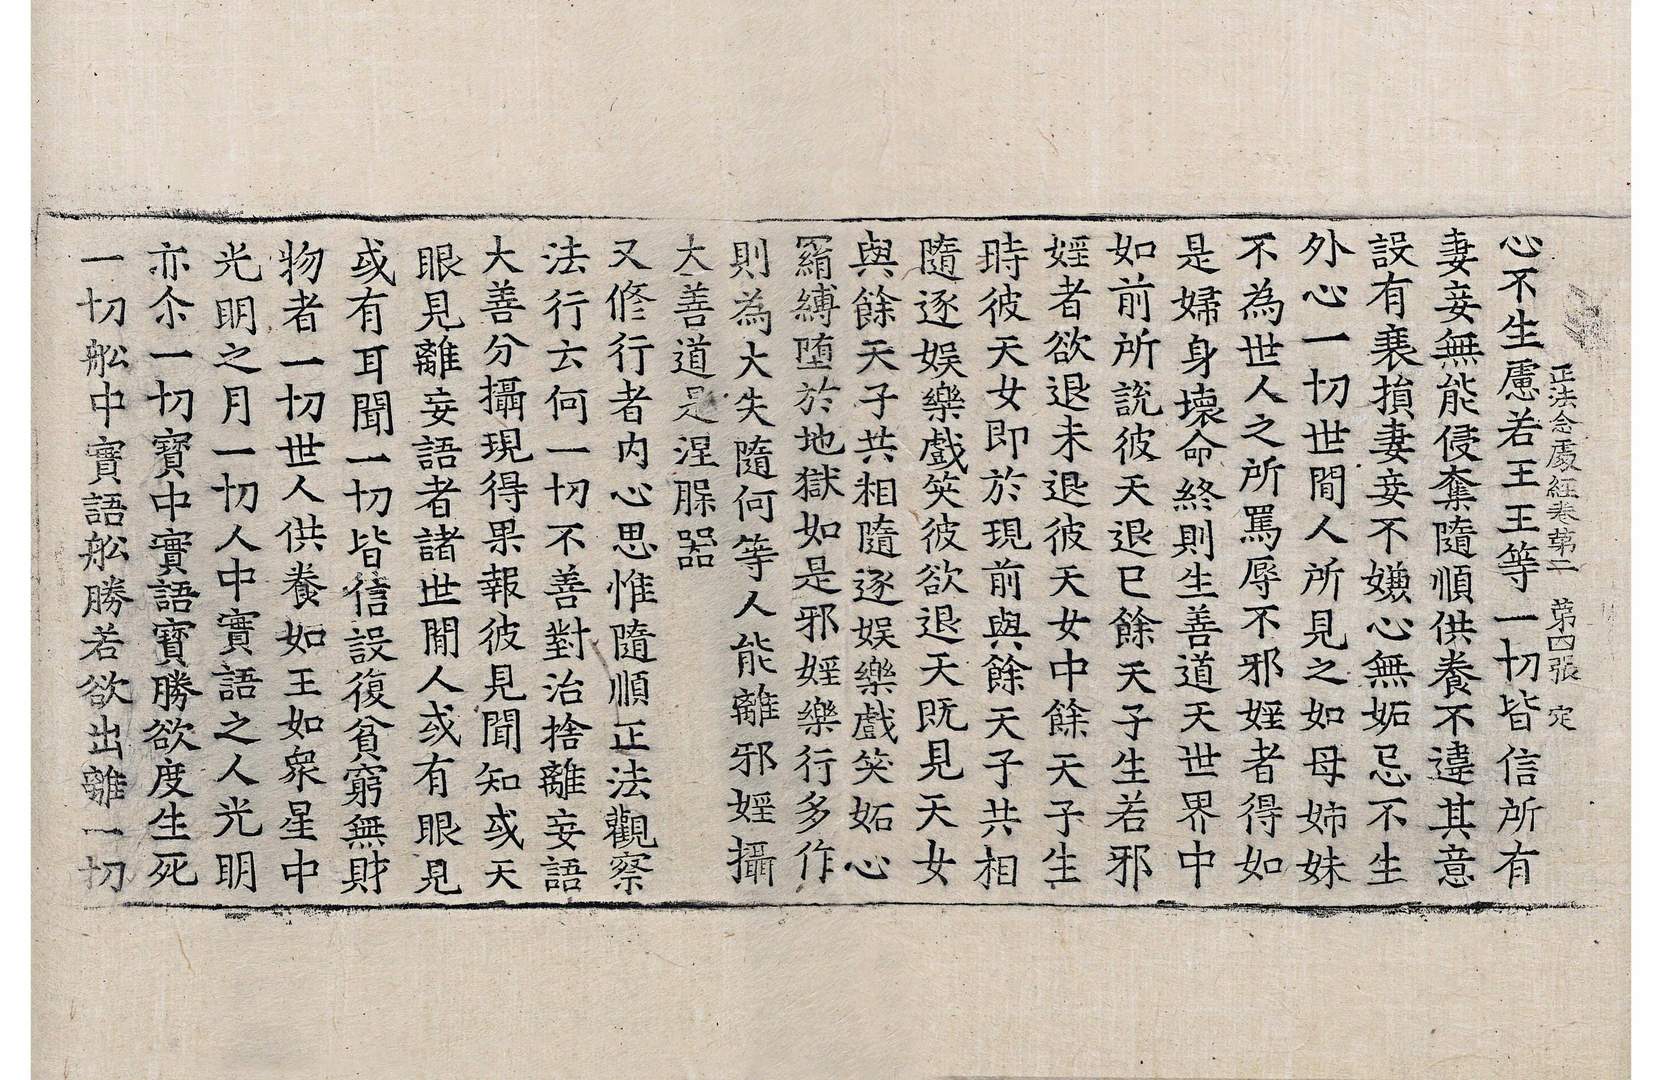 正法念處經卷第二 第四張 定
心不生慮若王王等一切皆信所有
妻妾無能侵奪隨順供養不違其意
設有衰損妻妾不嫌心無妬忌不生
外心一切世間人所見之如母姉妹
不為世人之所罵辱不邪婬者得如
是婦身壞命終則生善道天世界中
如前所說彼天退已餘天子生若邪
婬者欲退未退彼天女中餘天子生
時彼天女即於現前與餘天子共相
隨逐娛樂戲笑彼欲退天既見天女
與餘天子共相隨逐娛樂戲笑妬心
羂縛墮於地獄如是邪婬樂行多作
則為大失隨何等人能離邪婬攝
大善道是涅槃器
又修行者内心思惟隨順正法觀察
法行云何一切不善對治捨離妄語
大善分攝現得果報彼見聞知或天
眼見離妄語者諸世間人或有眼見
或有耳聞一切皆信設復貧窮無財
物者一切世人供養如王如衆星中
光明之月一切人中實語之人光明
亦尒一切寶中實語寶勝欲度生死
一切舩中實語舩勝若欲出離一切